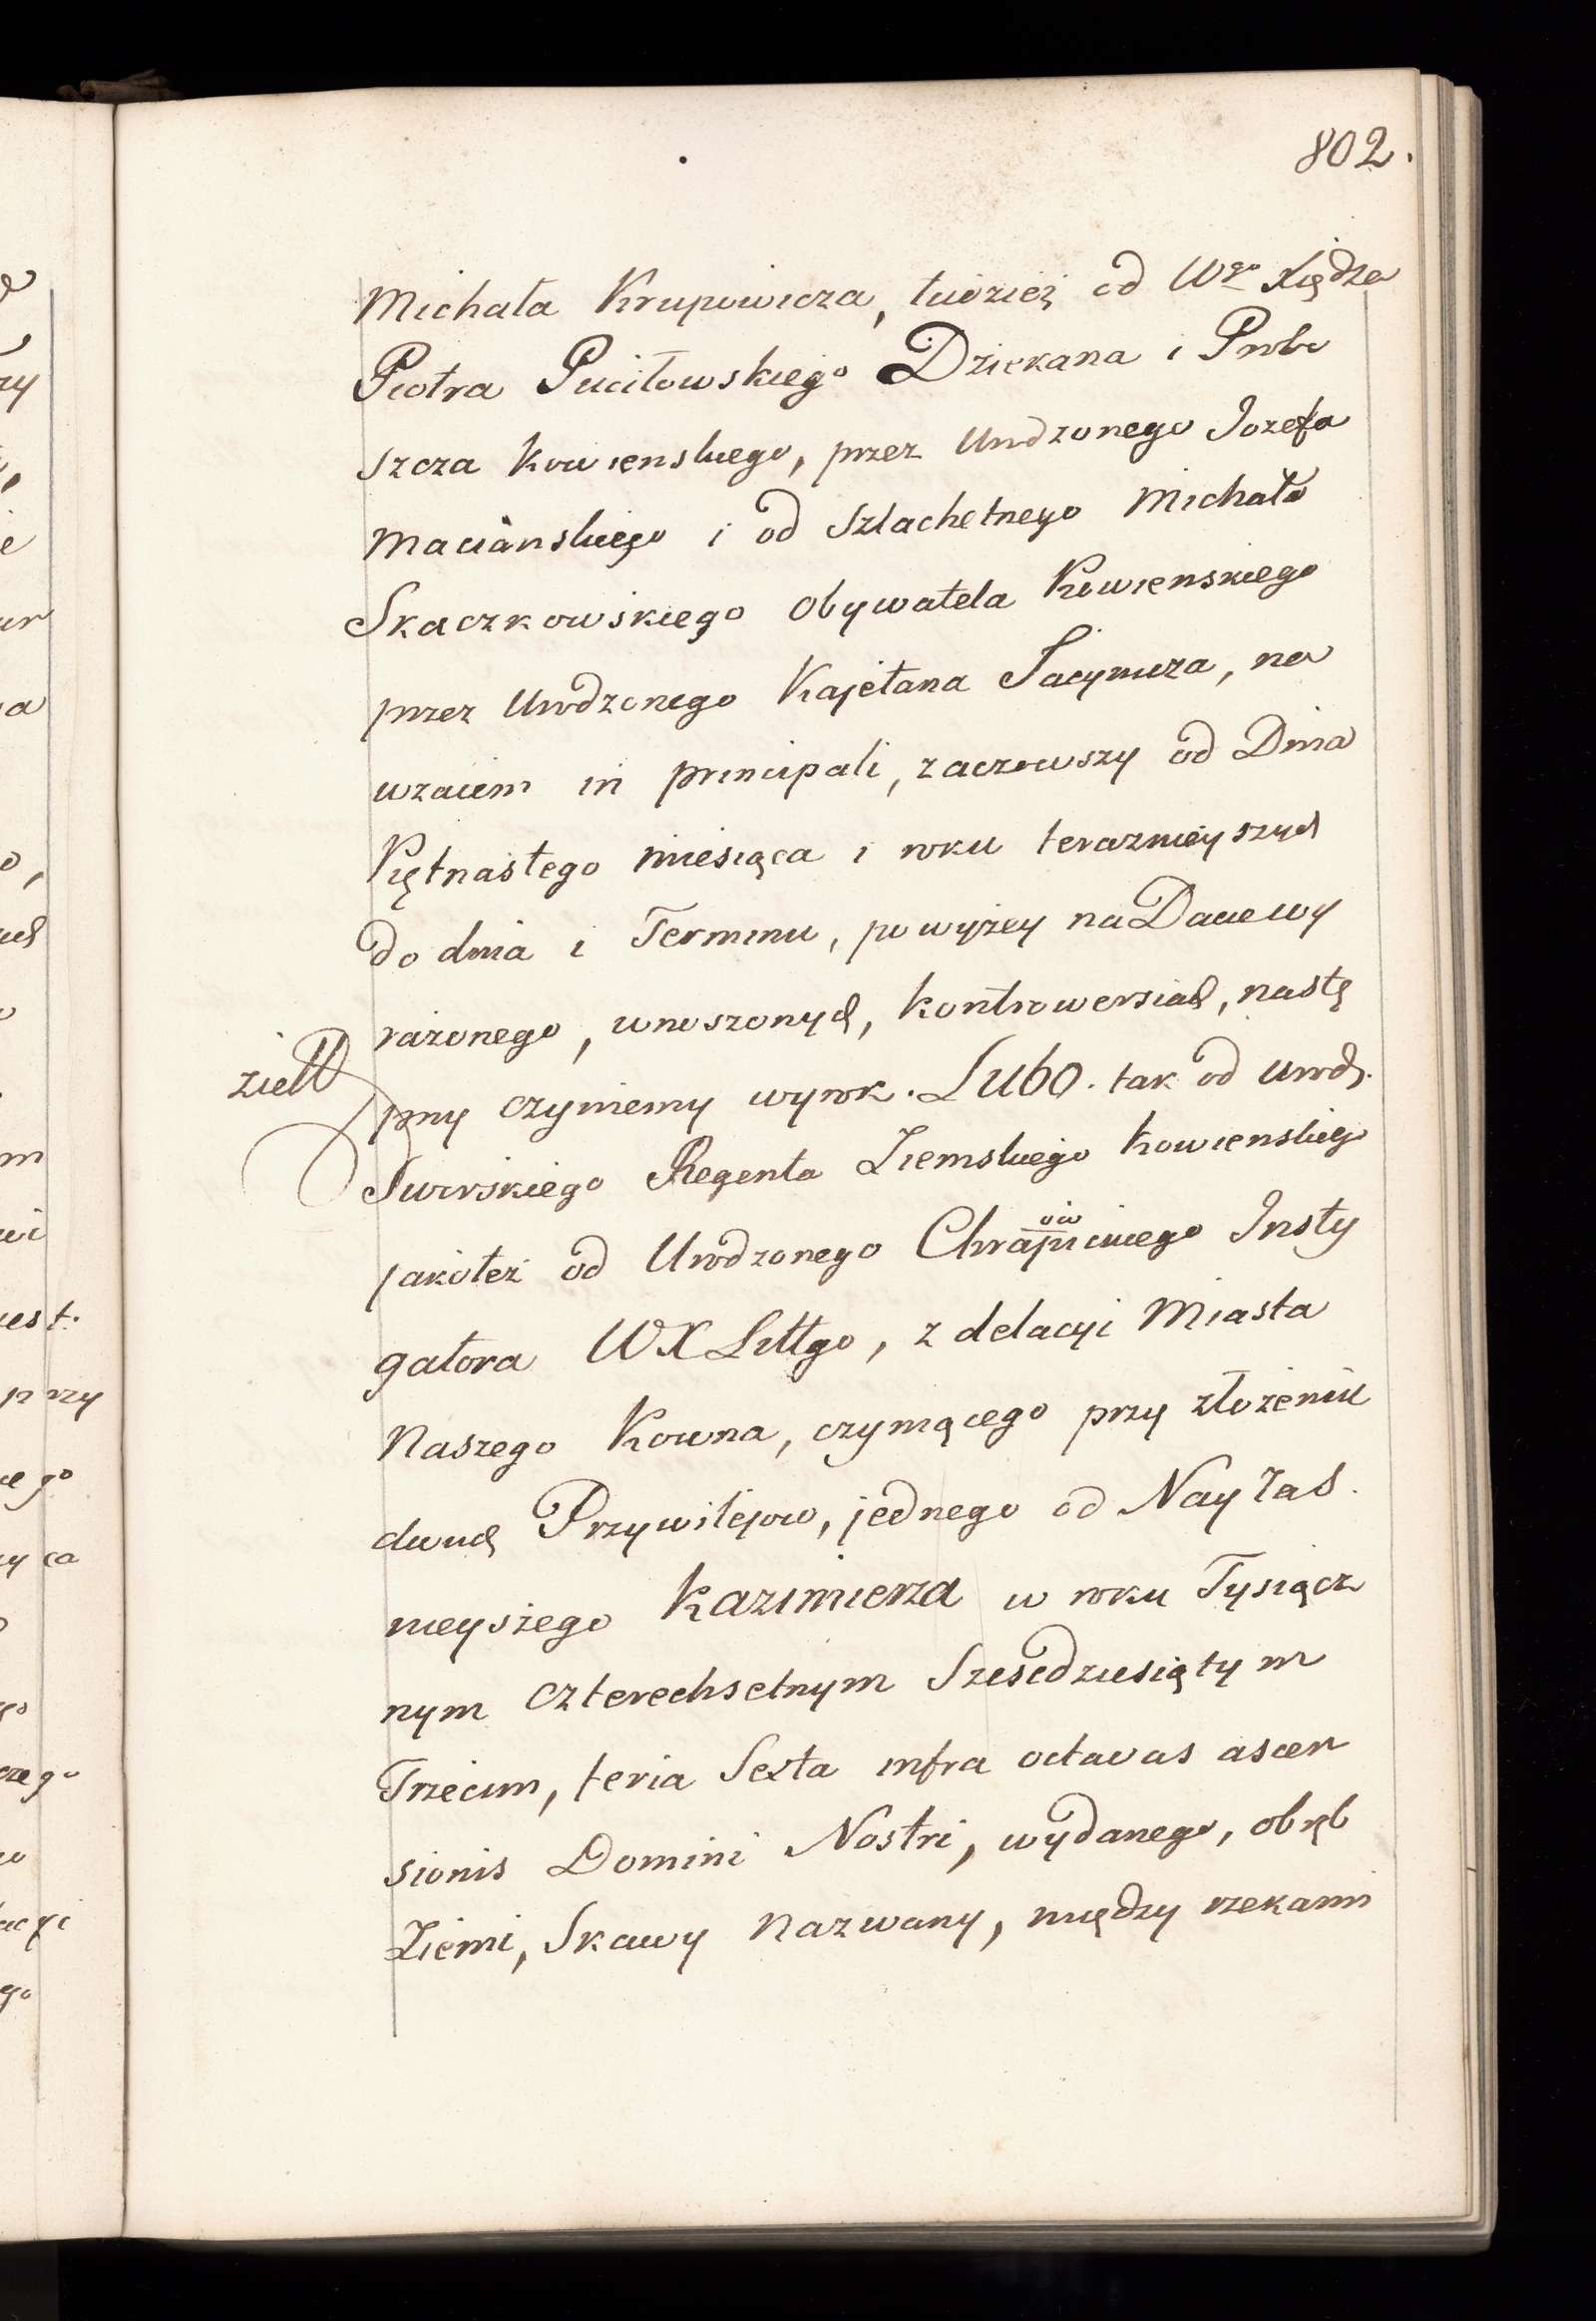 802.
Michała Krupowicza, tudzież od Wgo Xiędza
Piotra Puciłowskiego Dziekana i Probo
szcza Kowienskiego, przez Urodzonego Jozefa
Macianskiego i od Szlachetnego Michała
Skaczkowskiego Obywatela Kowienskiego
przez Urodzonego Kajetana Jacynicza, na
wzaiem in principali, zacząwszy od Dnia
Piętnastego miesiąca i roku teraznieyszych
do dnia i Terminu, powyżey na Dacie wy
rażonego, wnoszonych, kontrowersiach, nastę
pny czyniemy wyrok. Lubo. tak od Urodz.
Siwirskiego Regenta Ziemskiego Kowienskiego
jakoteż od Urodzonego Chrapickiego Insty
gatora WXLittgo, z delacyi Miasta
Naszego Kowna, czyniącego przy złożeniu
dwuch Przywilejow, jednego od NayJas.
nieyszego Kazimierza w roku Tysiącz
nym Czterechsetnym Szescdziesiątym
Trzecim, feria Sexta infra octavas ascen
sionis Domini Nostri, wydanego, obręb
Ziemi, Skawy Nazwany, między rzekami